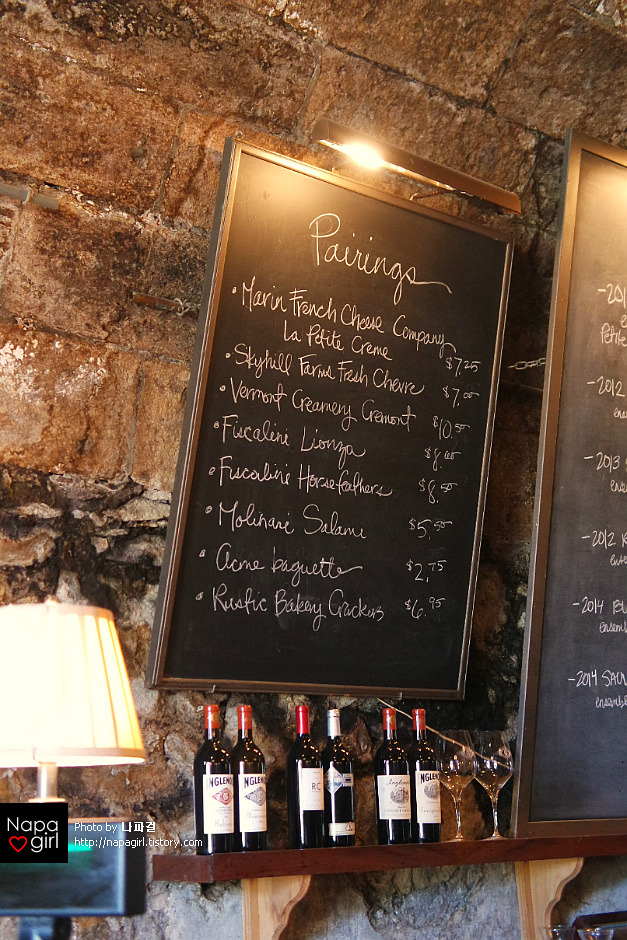 Pairings
• Marin French Cheese Company
La Petite Creme $7.25
• Skyhill Farms Fresh Chevre $7.00
• Vermont Creamery Cremont $10.50
• Fiscalini Lionza $8.00
• Fiscalini Horsefeathers $8.50
• Molinari Salami $5.50
• Acme baguette $2.75
• Rustic Bakery Crackers $6.95
-201
Petite
-2012
-2013
-2012
-2014
-2014
INGLENO
INGLENO
RC
INGLEN
Napa
girl
Photo by 나파걸
http://napagirl.tistory.com